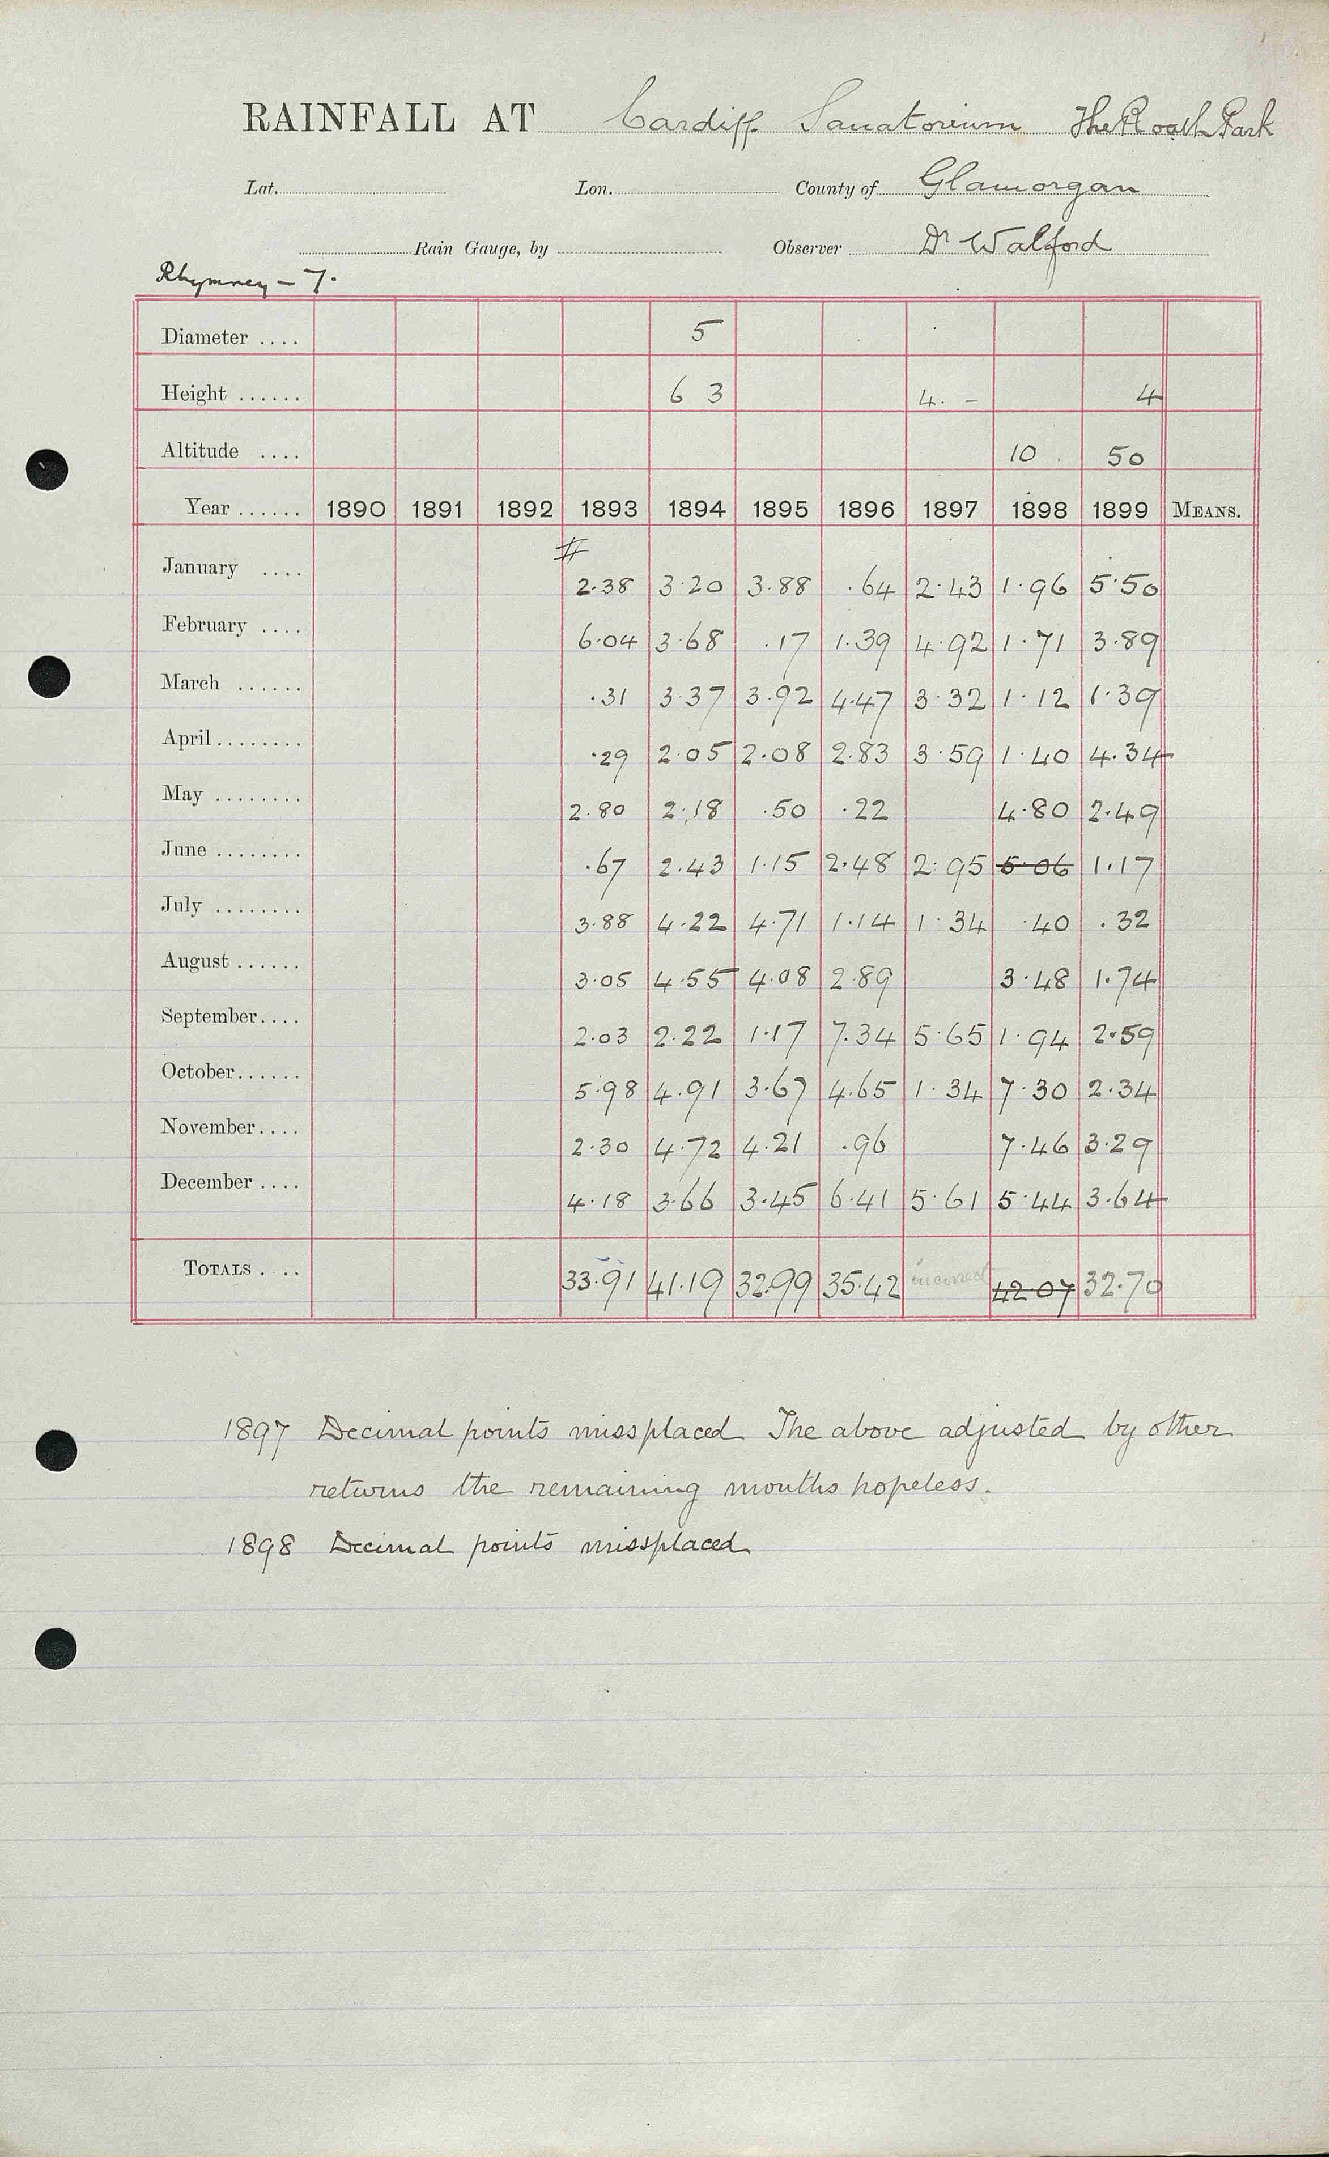 RAINFALL AT Cardiff Sanatorium The Roath Park
Lat. Lon. County of Glamorgan
Rain Gauge, by Observer Dr Walford
Rhymney - 7.
Diameter .... 5
Height ...... 6 3 4. - 4
Altitude .... 10 . 50
Year ...... 1890 1891 1892 1893 1894 1895 1896 1897 1898 1899 MEANS.
#
January .... 2.38 3.20 3.88 .64 2.43 1.96 5.50
February .... 6.04 3.68 .17 1.39 4.92 1.71 3.89
March ...... .31 3.37 3.92 4.47 3.32 1.12 1.39
April ........ .29 2.05 2.08 2.83 3.59 1.40 4.34
May ........ 2.80 2.18 .50 .22 4.80 2.49
June ........ .67 2.43 1.15 2.48 2.95 5.06 1.17
July ........ 3.88 4.22 4.71 1.14 1.34 .40 .32
August ...... 3.05 4.55 4.08 2.89 3.48 1.74
September.... 2.03 2.22 1.17 7.34 5.65 1.94 2.59
October...... 5.98 4.91 3.67 4.65 1.34 7.30 2.34
November.... 2.30 4.72 4.21 .96 7.46 3.29
December .... 4.18 3.66 3.45 6.41 5.61 5.44 3.64
TOTALS .... 33.91 41.19 32.99 35.42 incorrect 42.07 32.70
1897 Decimal points missplaced The above adjusted by other
returns the remaining months hopeless.
1898 Decimal points missplaced